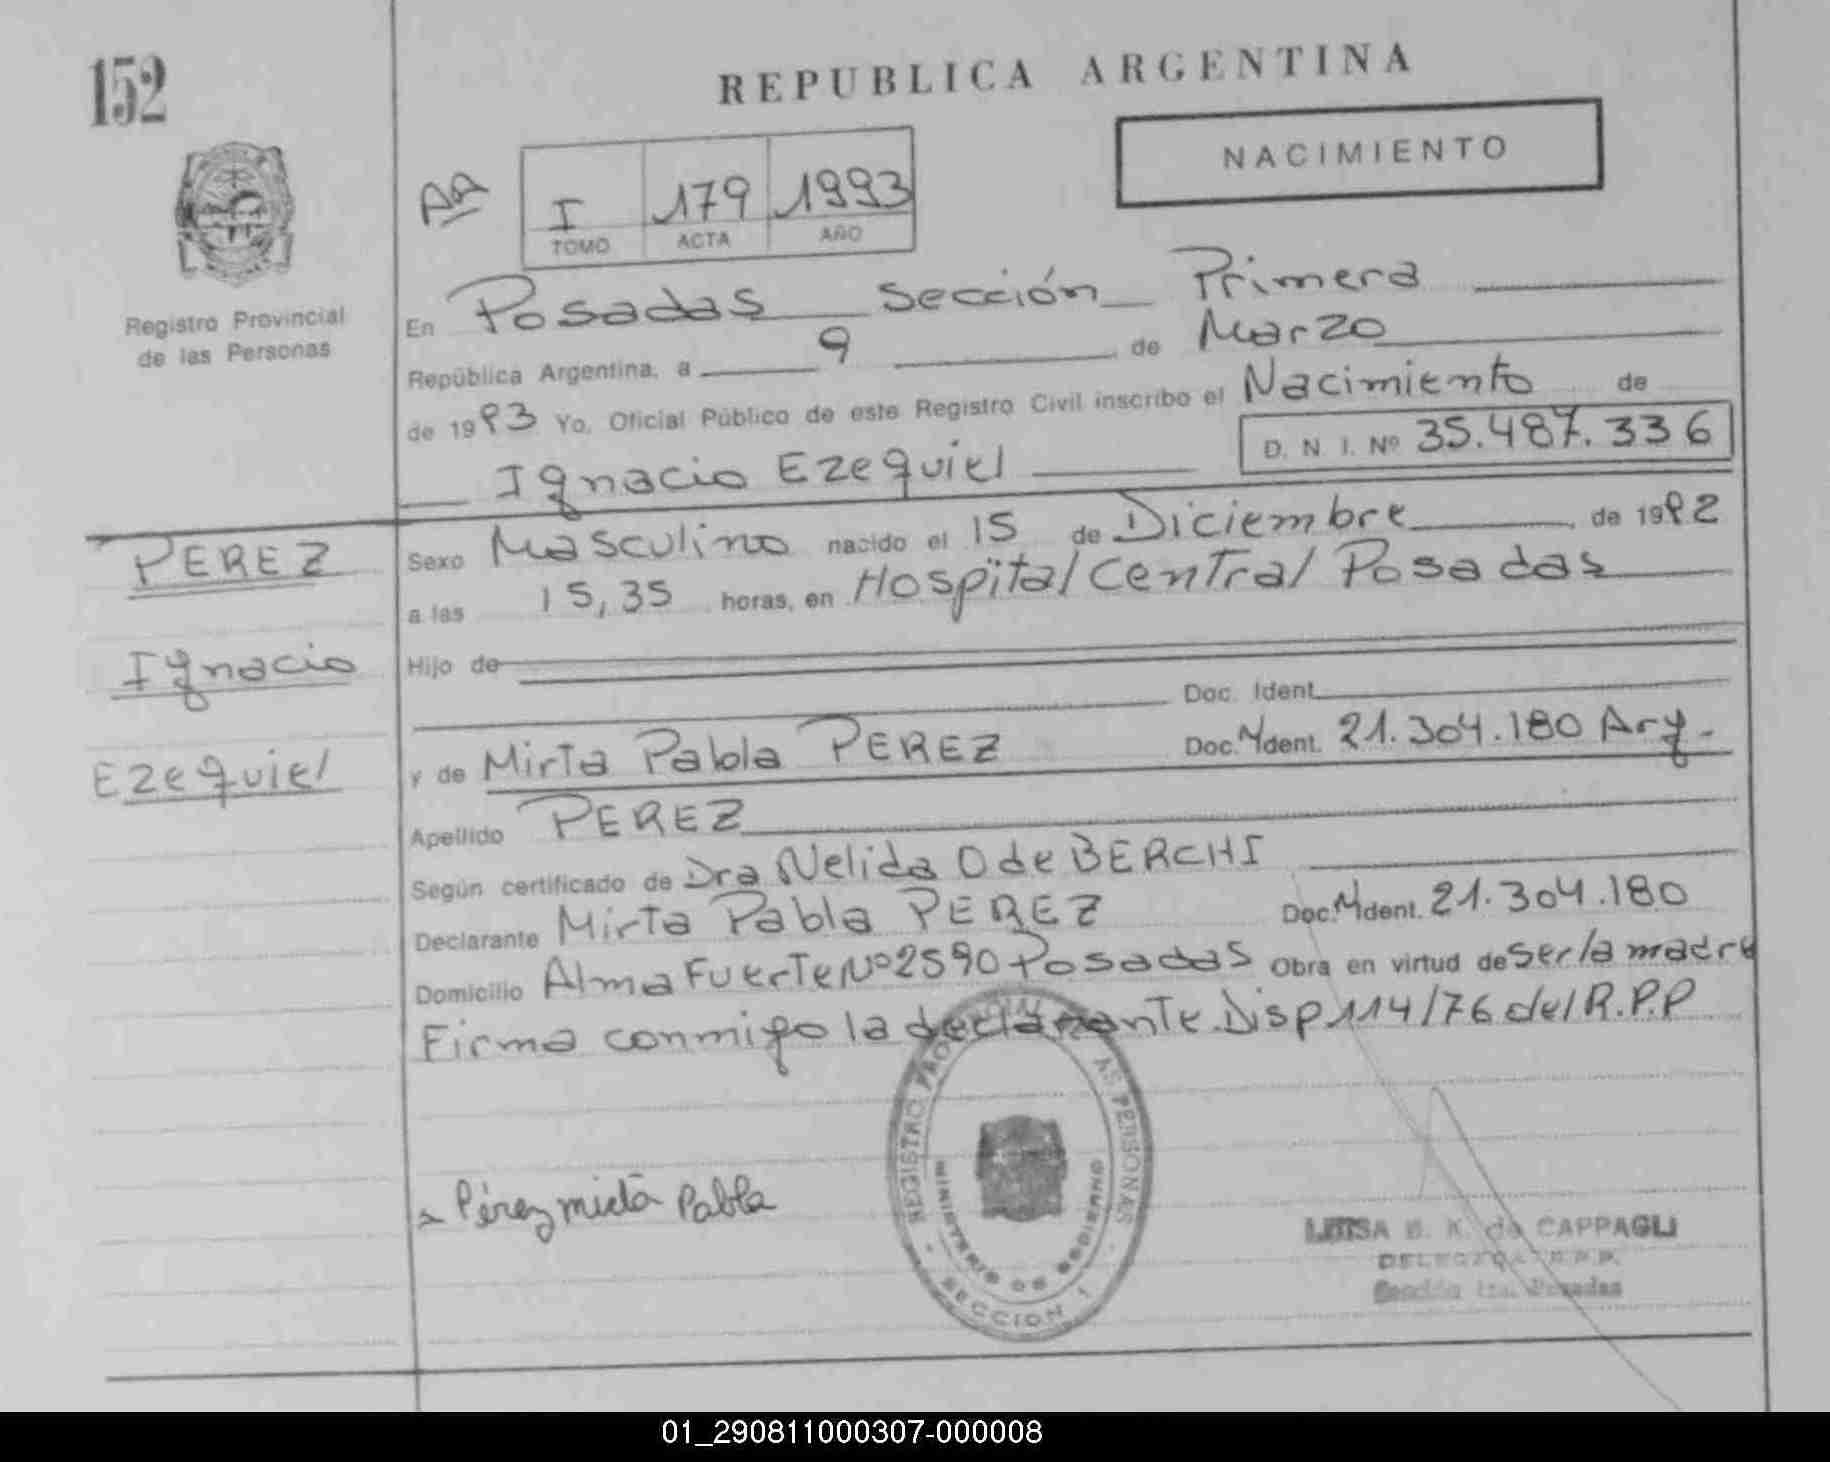 152
REPUBLICA ARGENTINA
NACIMIENTO
I 179 1993
TOMO ACTA AÑO
Registro Provincial
de las Personas
En Posadas Sección Primera
República Argentina, a 9 de Marzo
de 1993 Yo, Oficial Público de este Registro Civil inscribo el Nacimiento de
D. N. I. Nº 35.487.336
Ignacio Ezequiel
PEREZ
Ignacio
Ezequiel
Sexo Masculino nacido el 15 de Diciembre de 1992
a las 15,35 horas, en Hospital Central Posadas
Hijo de
Doc. Ident.
y de Mirta Pabla PEREZ Doc. N Ident. 21.304.180 Arg.
Apellido PEREZ
Según certificado de Dra Nelida O de BERCHI
Declarante Mirta Pabla PEREZ Doc. N Ident. 21.304.180
Domicilio Alma Fuerte Nº 2590 Posadas Obra en virtud de ser la madre
Firma conmigo la declarante. Disp 114/76 del R.P.P
REGISTRO PROVINCIAL AS PERSONAS
MINISTERIO DE GOBIERNO
SECCION 1
Pérez mirta Pabla
LUISA B. K. de CAPPAGLI
DELEGADA R.P.P.
Sección 1ra. Posadas
01_290811000307-000008